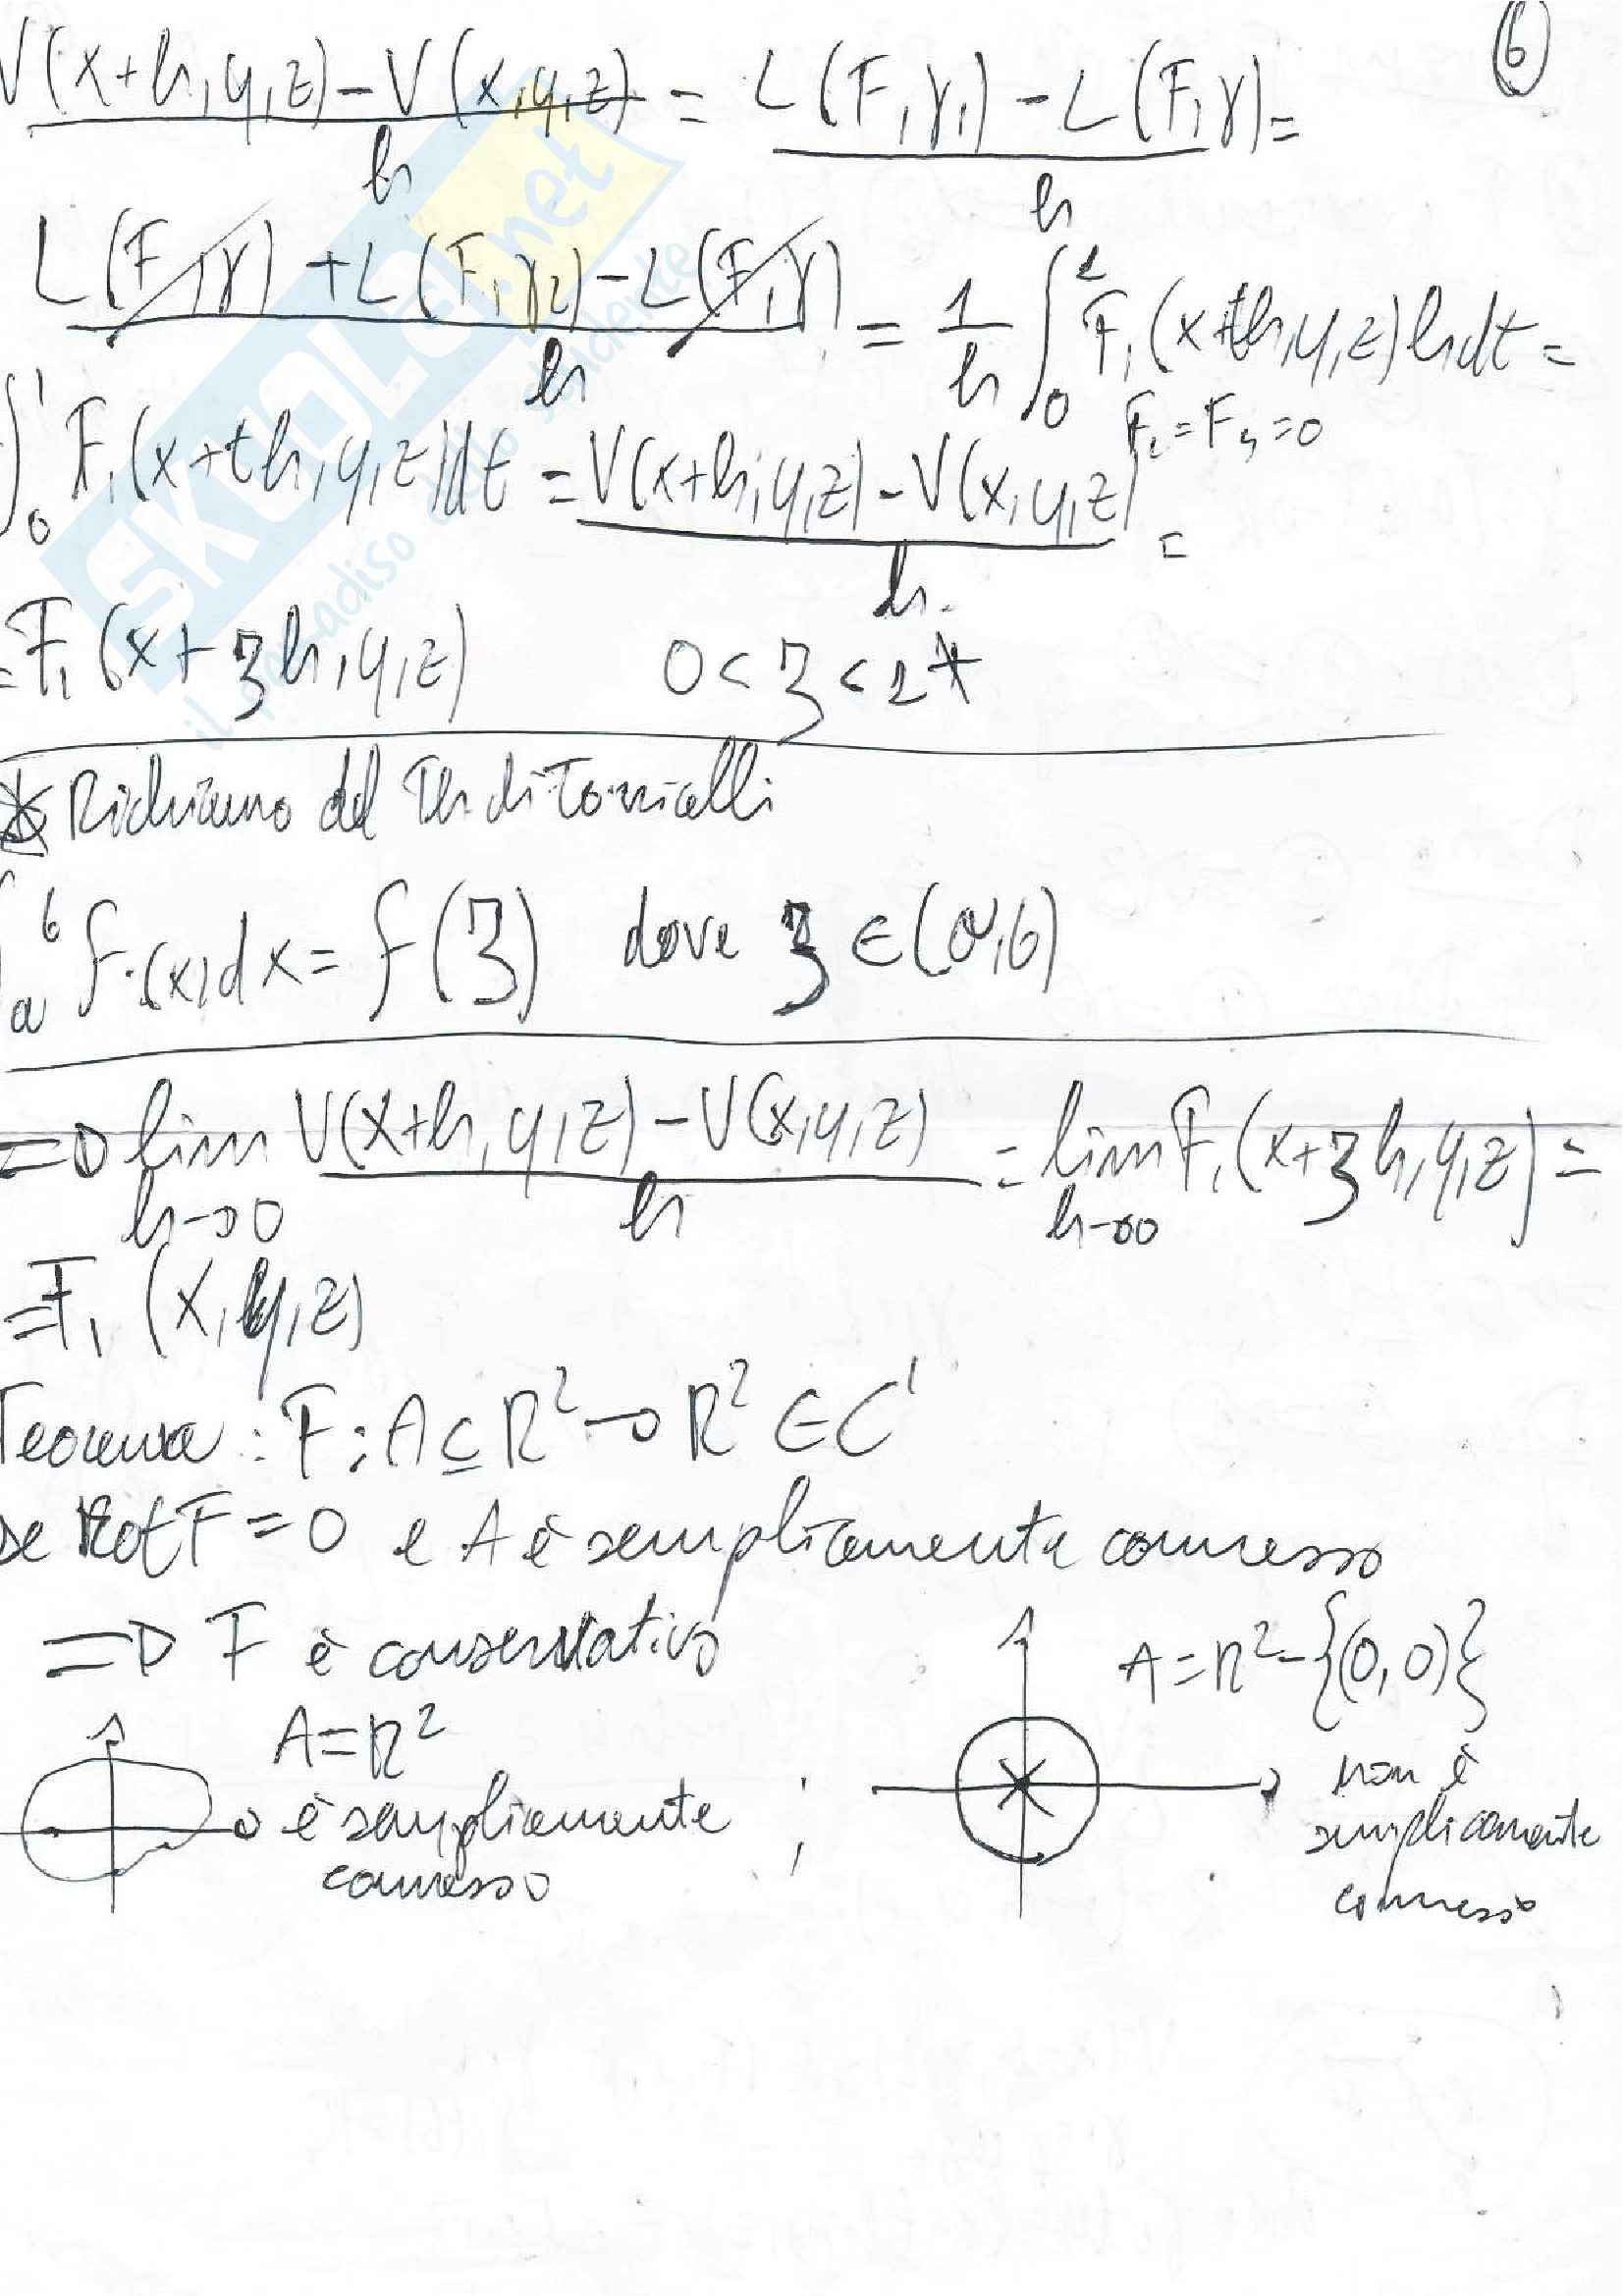 6
V(x+h,y,z)-V(x,y,z) / h = L(F,γ₁)-L(F,γ) / h =
L(F,γ)+L(F,γ₂)-L(F,γ) / h = 1/h ∫₀¹ F₁(x+th,y,z)h dt =
F₂=F₃=0
∫₀¹ F₁(x+th,y,z)dt = V(x+h,y,z)-V(x,y,z) / h =
=F₁(x+ξh,y,z) 0<ξ<1 *
* Richiamo del Th di Torricelli
∫ₐᵇ f(x)dx = f(ξ) dove ξ∈(a,b)
=> lim h→0 V(x+h,y,z)-V(x,y,z) / h = lim h→0 F₁(x+ξh,y,z) =
=F₁(x,y,z)
Teorema: F:A⊆R²→R² ∈C¹
Se Rot F=0 e A è semplicamente connesso
=> F è conservativo
A=R²
è semplicamente
connesso
;
A=R²-{(0,0)}
non è
semplicamente
connesso
SKUOLA.net
il paradiso dello studente